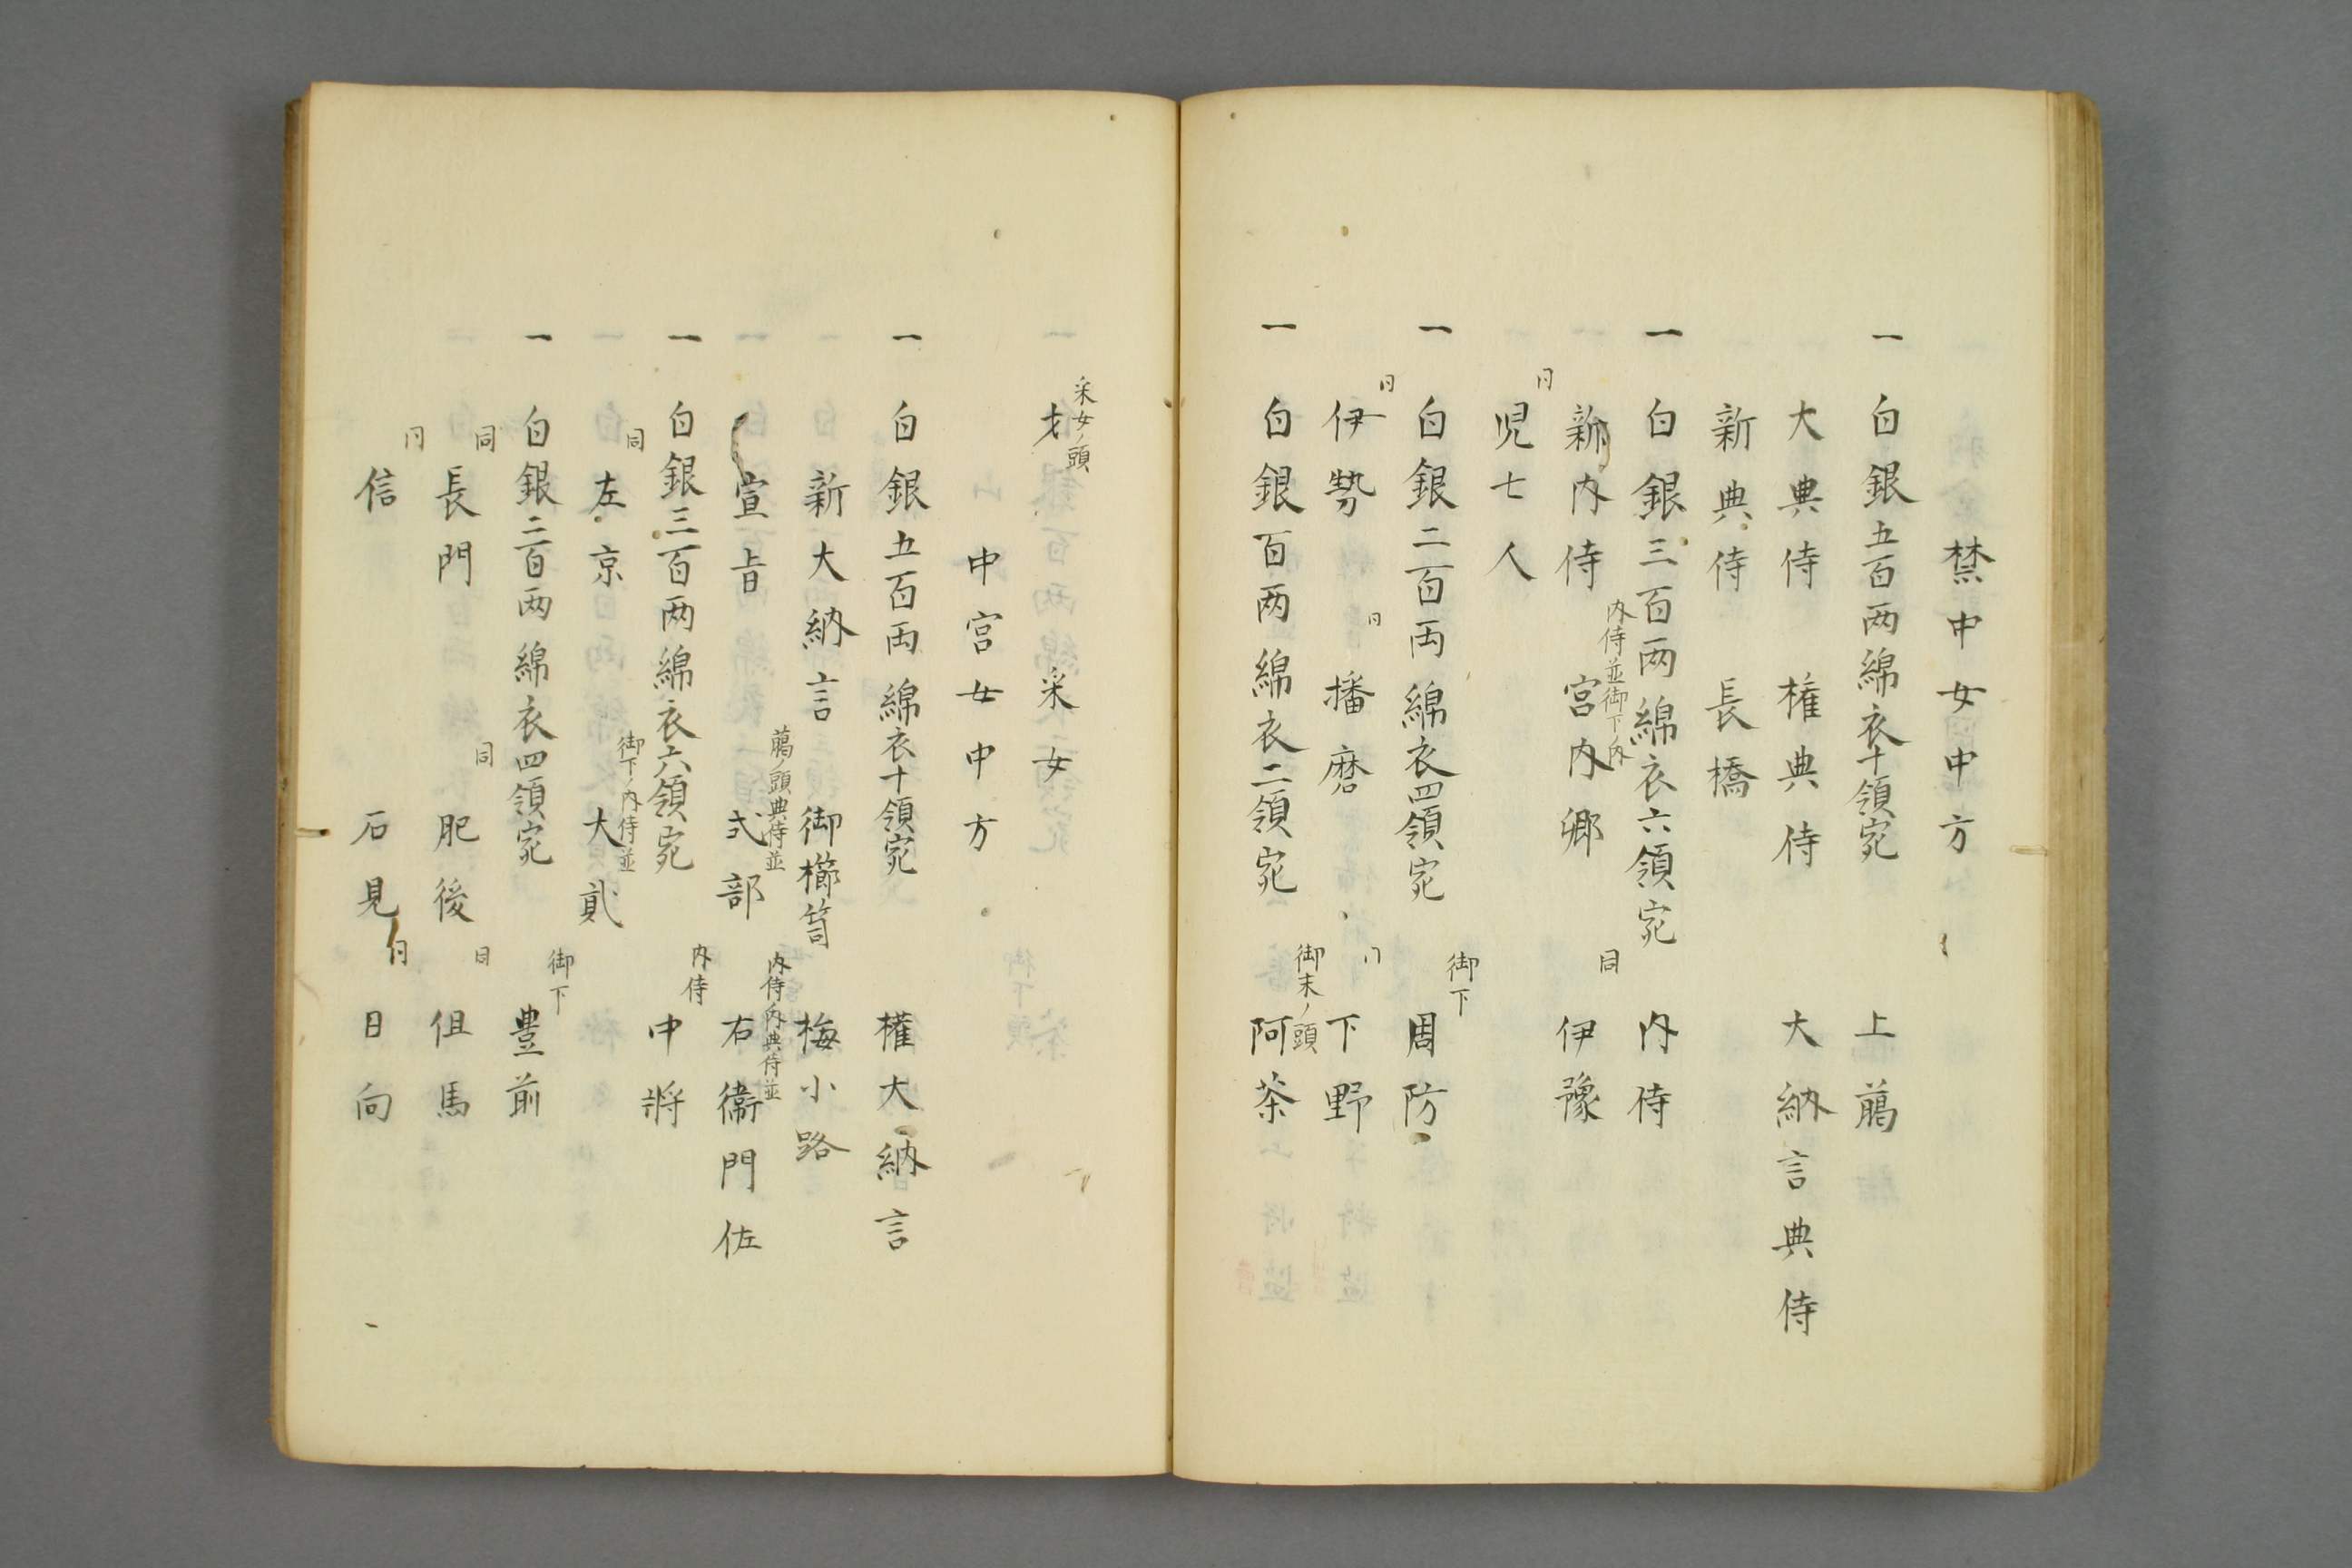 禁中女中方
一 白銀五百両綿衣十領宛 上﨟
大典侍 権典侍 大納言典侍
新典侍 長橋
一 白銀三百両綿衣六領宛 内侍
新内侍 内侍並御下ノ内 宮内卿 同 伊豫
同 児七人
一 白銀二百両綿衣四領宛 御下 周防
同 伊勢 同 播磨 同 下野
一 白銀百両綿衣二領宛 御末ノ頭 阿茶
采女ノ頭 才 采女
中宮女中方
一 白銀五百両綿衣十領宛 権大納言
新大納言 御櫛笥 梅小路
宣旨 﨟ノ頭典侍並 式部 内侍ノ内典侍並 右衛門佐
一 白銀三百両綿衣六領宛 内侍 中将
同 左京 御下ノ内侍並 大貳
一 白銀二百両綿衣四領宛 御下 豊前
同 長門 同 肥後 同 但馬
同 信 石見 同 日向